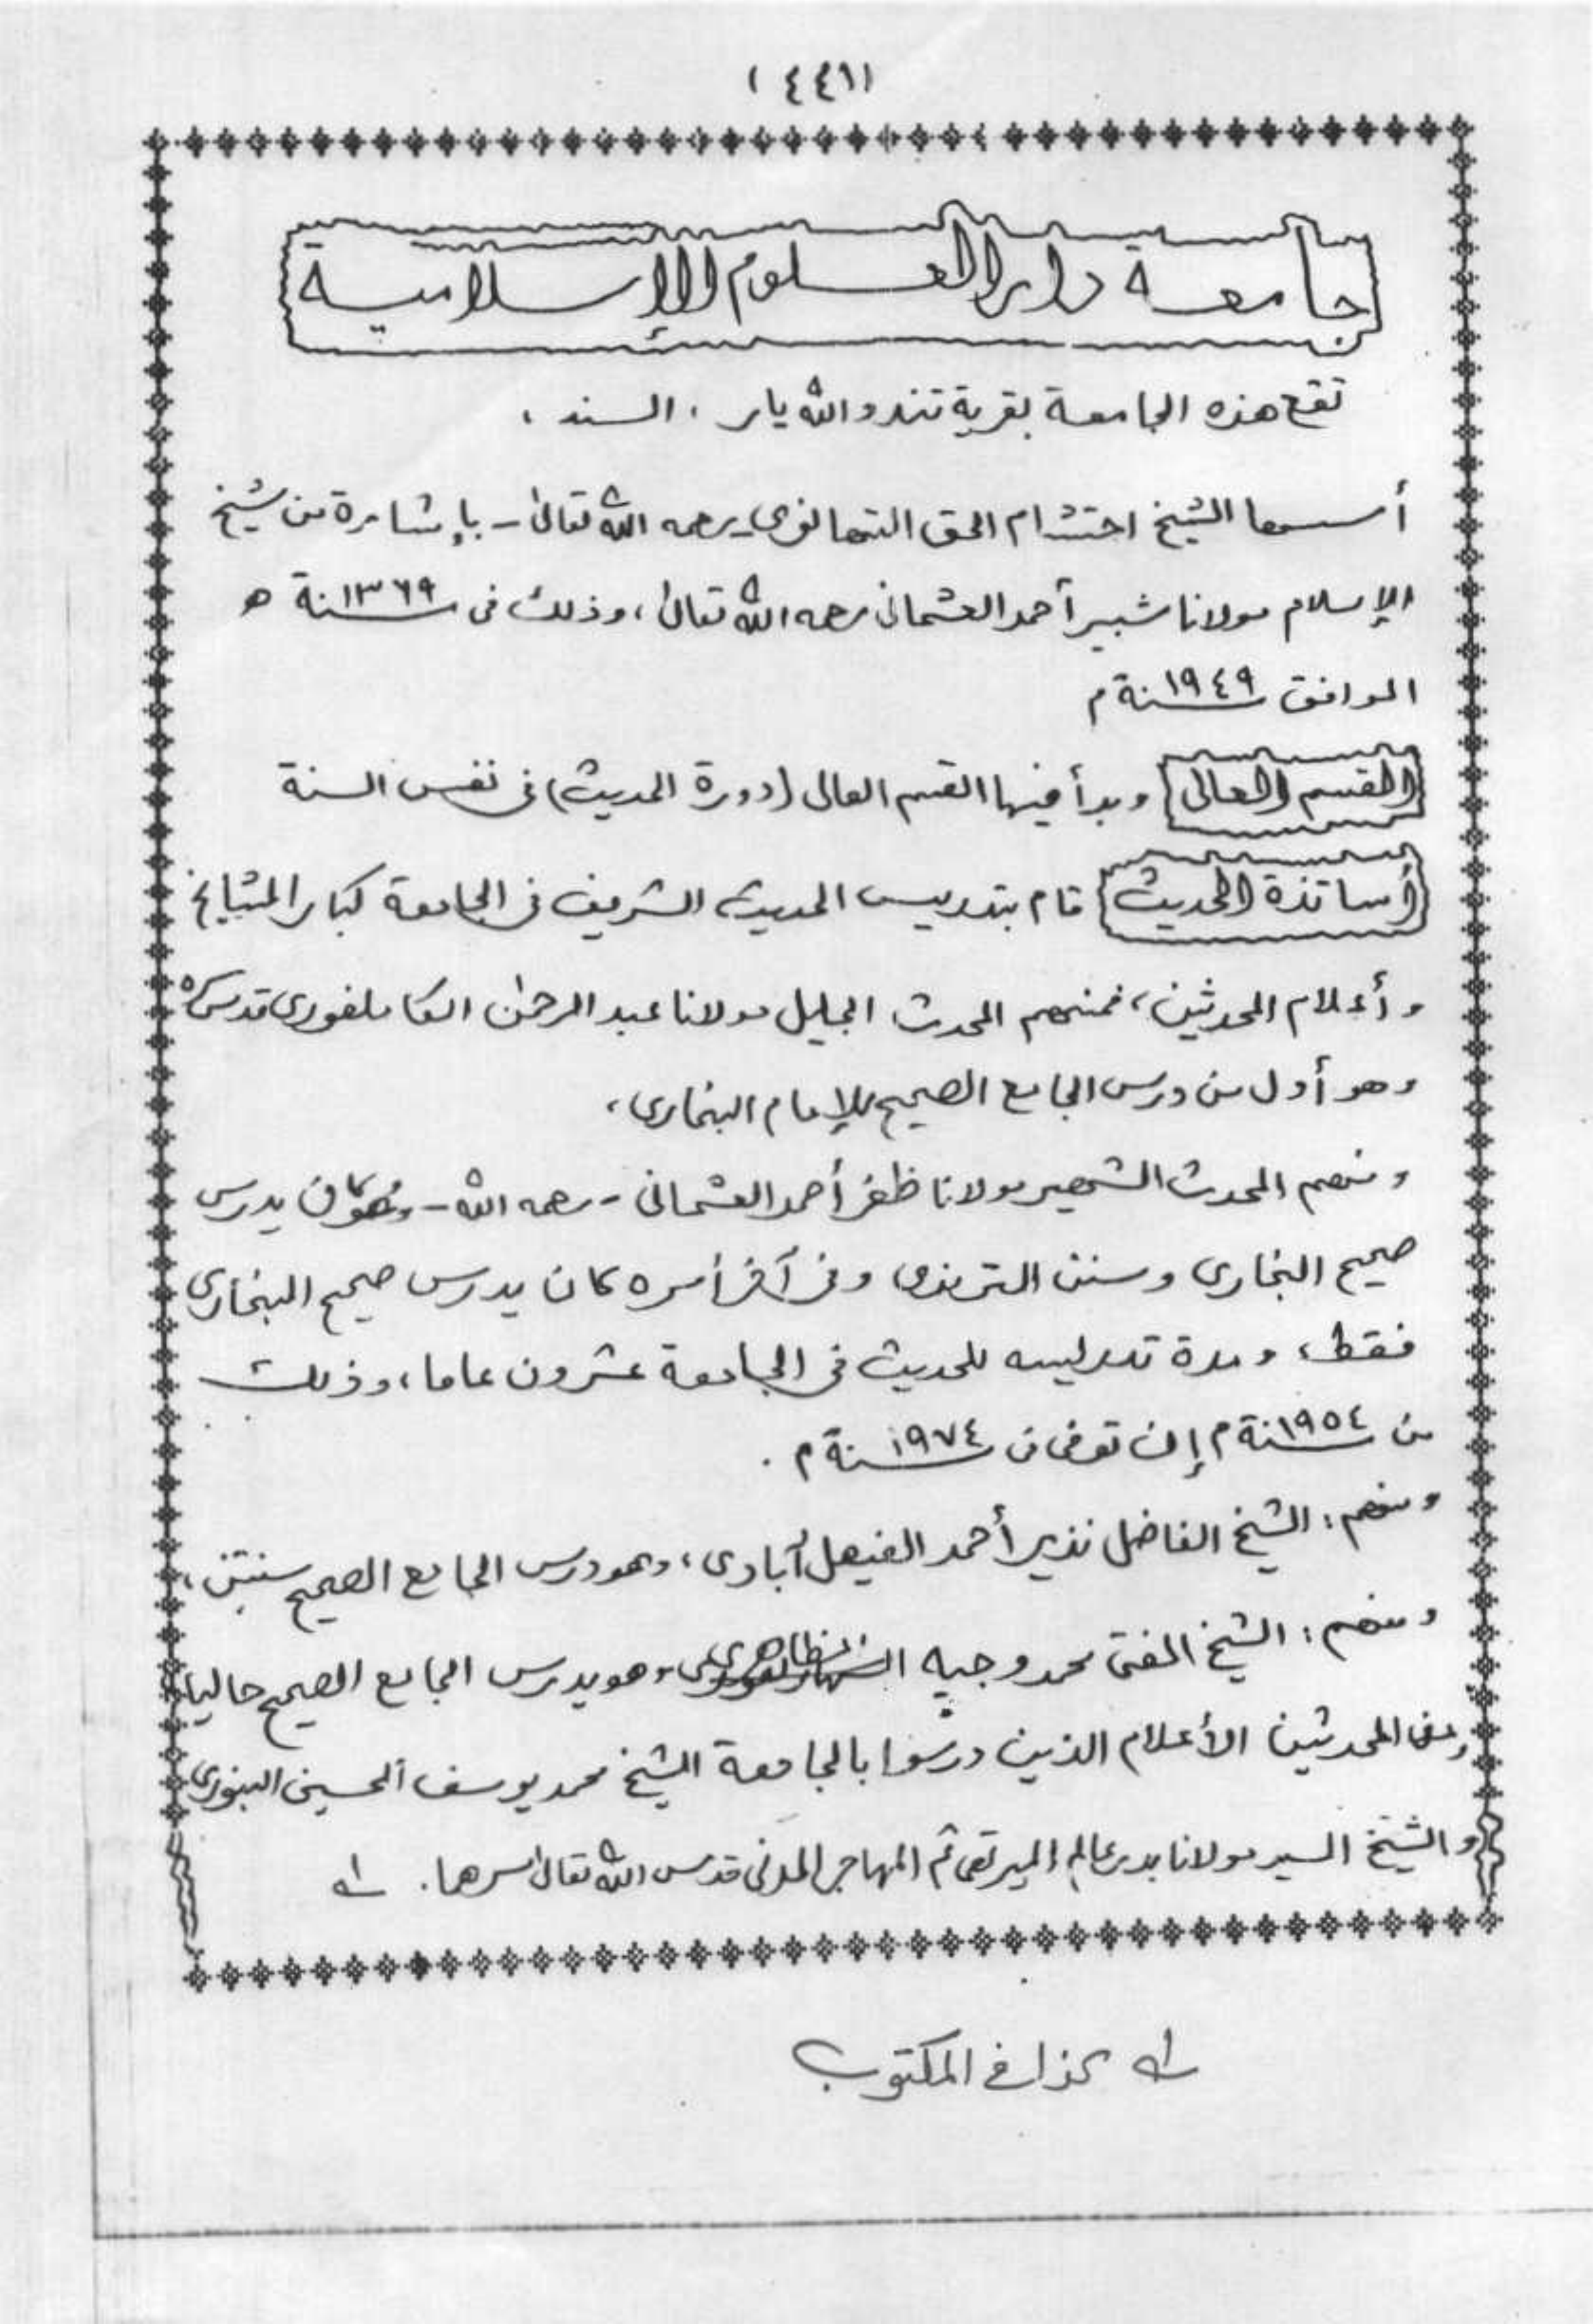 (٤٤٦)
جامعة دار العلوم الإسلامية
تقع هذه الجامعة بقرية تندو الله يار ، السند ،
أسسها الشيخ احتشام الحق التهانوي رحمه الله تعالى - بإشارة من شيخ
الإسلام مولانا شبير أحمد العثمانى رحمه الله تعالى ، وذلك فى سنة ١٣٦٩ ه
الموافق سنة ١٩٤٩ م
القسم العالى وبدأ فيها القسم العالى (دورة الحديث) فى نفس السنة
أساتذة الحديث قام بتدريس الحديث الشريف فى الجامعة كبار المشايخ
وأعلام المحدثين ، فمنهم المحدث الجليل مولانا عبد الرحمن الكاملفورى قدس سره
وهو أول من درس الجامع الصحيح للإمام البخارى ،
ومنهم المحدث الشهير مولانا ظفر أحمد العثمانى - رحمه الله - وهو كان يدرس
صحيح البخارى وسنن الترمذى وفى آخر أمره كان يدرس صحيح البخارى
فقط ، ومدة تدريسه للحديث فى الجامعة عشرون عاما ، وذلك
من سنة ١٩٥٤ م إلى توفى فى سنة ١٩٧٤ م .
ومنهم : الشيخ الفاضل نذير أحمد الفيصل آبادى ، وهو درس الجامع الصحيح سنتين ،
ومنهم : الشيخ المفتى محمد وجيه الظاهرى وهو يدرس الجامع الصحيح حاليا
ومن المحدثين الأعلام الذين درسوا بالجامعة الشيخ محمد يوسف الحسينى البنورى
والشيخ السيد مولانا بدر عالم الميرتهى ثم المهاجر المدنى قدس الله تعالى سرهما . لـه
لـه كذا فى المكتوب